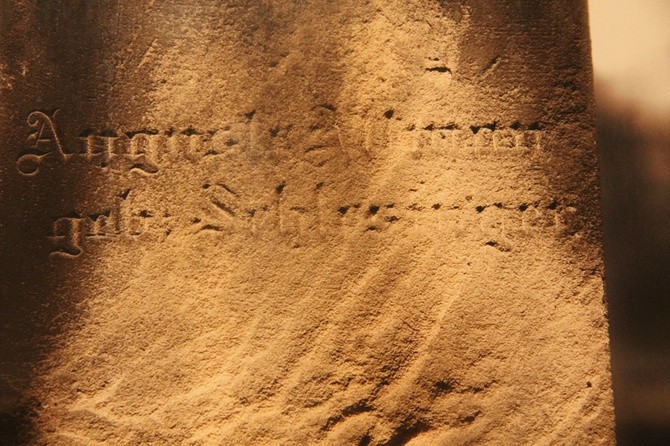 Auguste
geb. Schlesinger